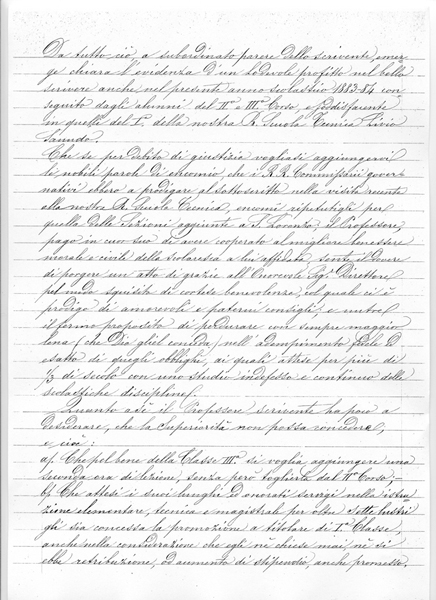 Da tutto ciò, a subordinato parere dello scrivente, emer-
ge chiara l'evidenza d'un lodevole profitto nel bello
scrivere anche nel presente anno scolastico 1883-84 con
seguito dagli alunni del II.° e III.° Corso, e soddisfacente
in quelle del I.° della nostra R. Scuola Tecnica Livio
Saundo.
Che se per debito di giustizia vogliasi aggiungervi
le nobili parole di encomio, che i R.R. Commissarii gover-
nativi ebbero a prodigare al sottoscritto nella visita recente
alla nostra R. Scuola Tecnica, encomi ripetutigli per
quella delle Sezioni aggiunte a S. Lorenzo; il Professore,
pago in cuor suo di avere cooperato al migliore benessere
morale e civile della scolaresca a lui affidata, sente il dovere
di porgere un atto di grazie all'Onorevole Sig.r Direttore
pel modo squisito di cortese benevolenza, col quale ci è
prodigo di amorevoli e paterni consigli; e nutre
il fermo proposito di perdurare con sempre maggior
lena (che Dio gliel conceda) nell'adempimento fedele ed
esatto di quegli obblighi, ai quali attese per più di
1/3 di secolo con uno studio indefesso e continuo delle
scolastiche discipline.
Quanto a sè il Professore scrivente ha poco a
desiderare, che la Superiorità non possa concedere,
e cioè:
a/. Che pel bene della Classe III.a si voglia aggiungere una
seconda ora di lezione, senza però toglierla dal II° Corso;
b/ Che attesi i suoi lunghi ed onorati servigi nella istru
zione elementare, tecnica e magistrale per oltre sette lustri
gli sia concessa la promozione a titolare di I.a Classe,
anche nella considerazione che egli nè chiese mai, nè si
ebbe retribuzione, od aumento di stipendio, anche promesso.